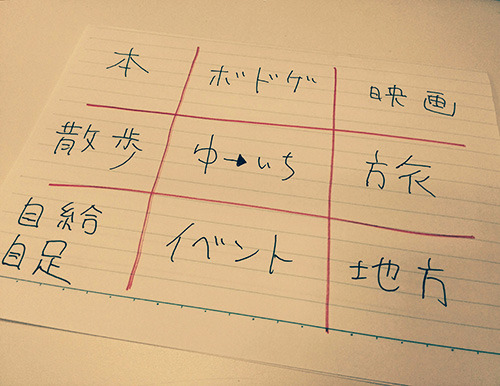 本 ボドゲ 映画
散歩 ゆ→いち 旅
自給 イベント 地方
自足